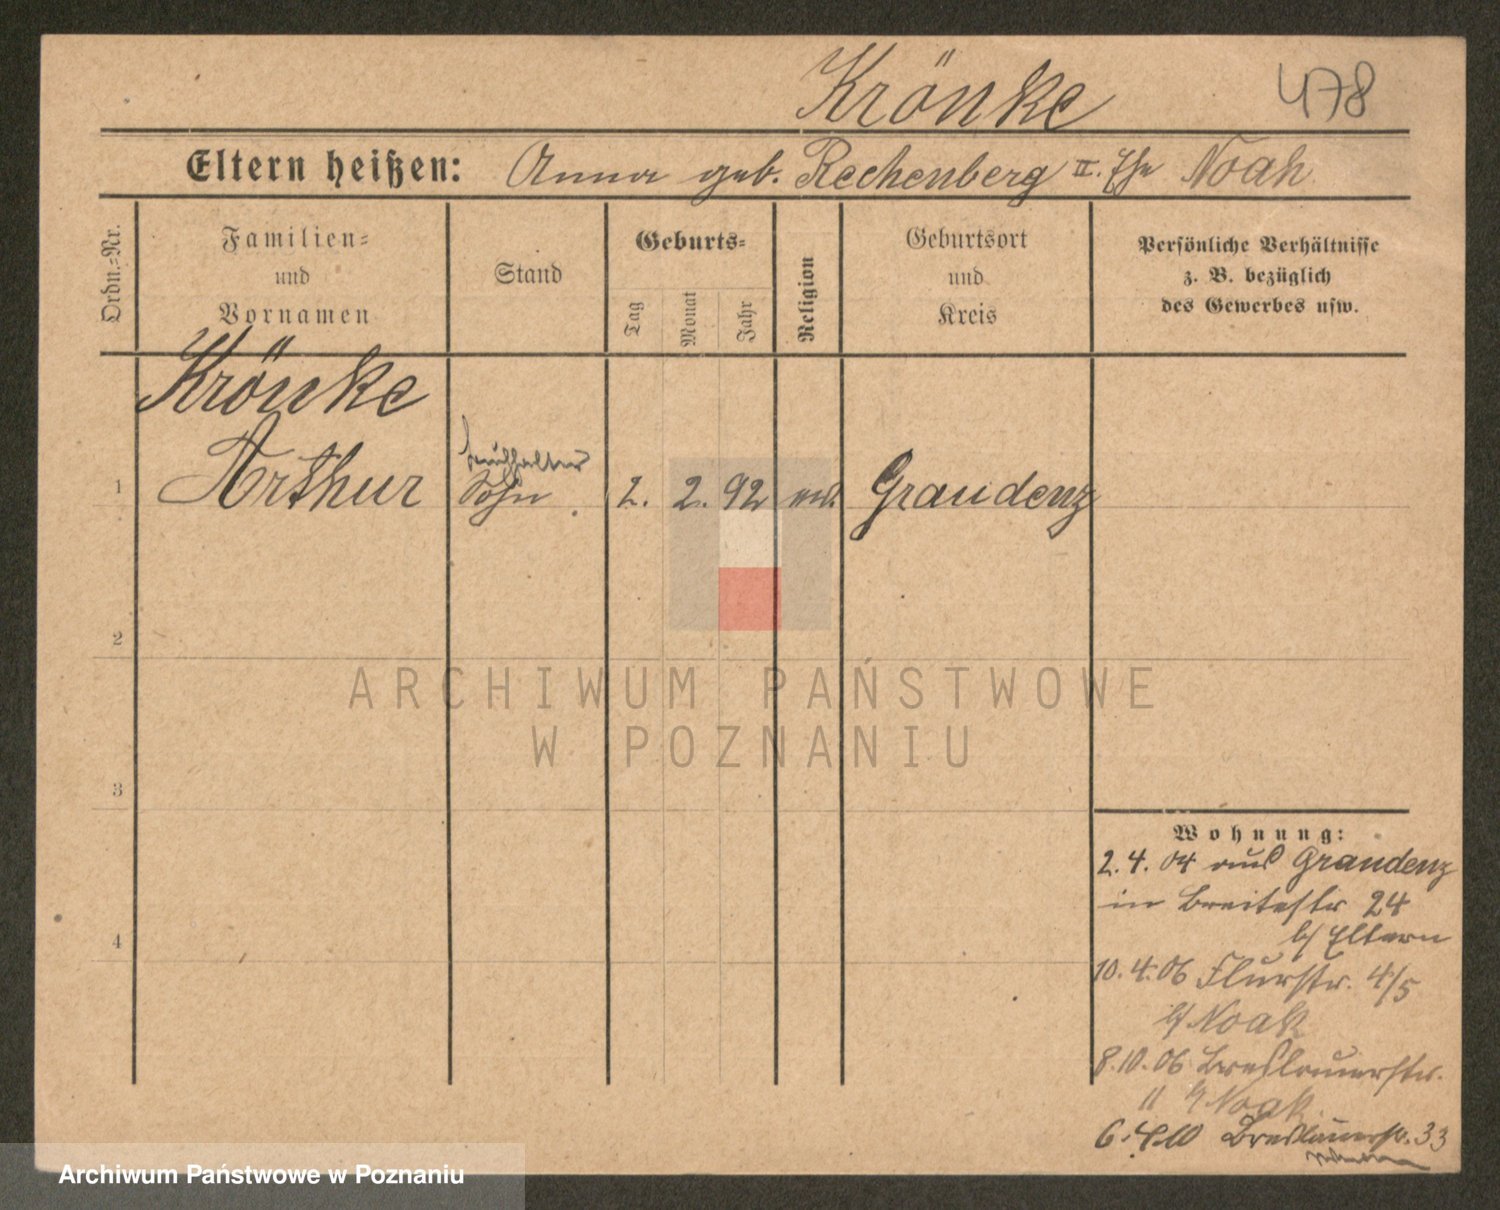 Krönke
478
Eltern heißen: Anna geb. Rechenberg II. Ehe Noah
Ordn.=Nr.
Familien=
und
Vornamen
Stand
Geburts=
Tag
Monat
Jahr
Religion
Geburtsort
und
Kreis
Persönliche Verhältnisse
z. B. bezüglich
des Gewerbes usw.
Krönke
Buchhalter
1 Arthur Sohn 2. 2. 92 ev. Graudenz
2
ARCHIWUM PAŃSTWOWE
W POZNANIU
3
4
Wohnung:
2. 4. 04 aus Graudenz
in Breitestr 24
b/ Eltern
10. 4. 06 Flurstr. 4/5
b/ Noak
8. 10. 06 Breslauerstr.
11 b/ Noak
6. 4. 10 Breslauerstr. 33
Archiwum Państwowe w Poznaniu